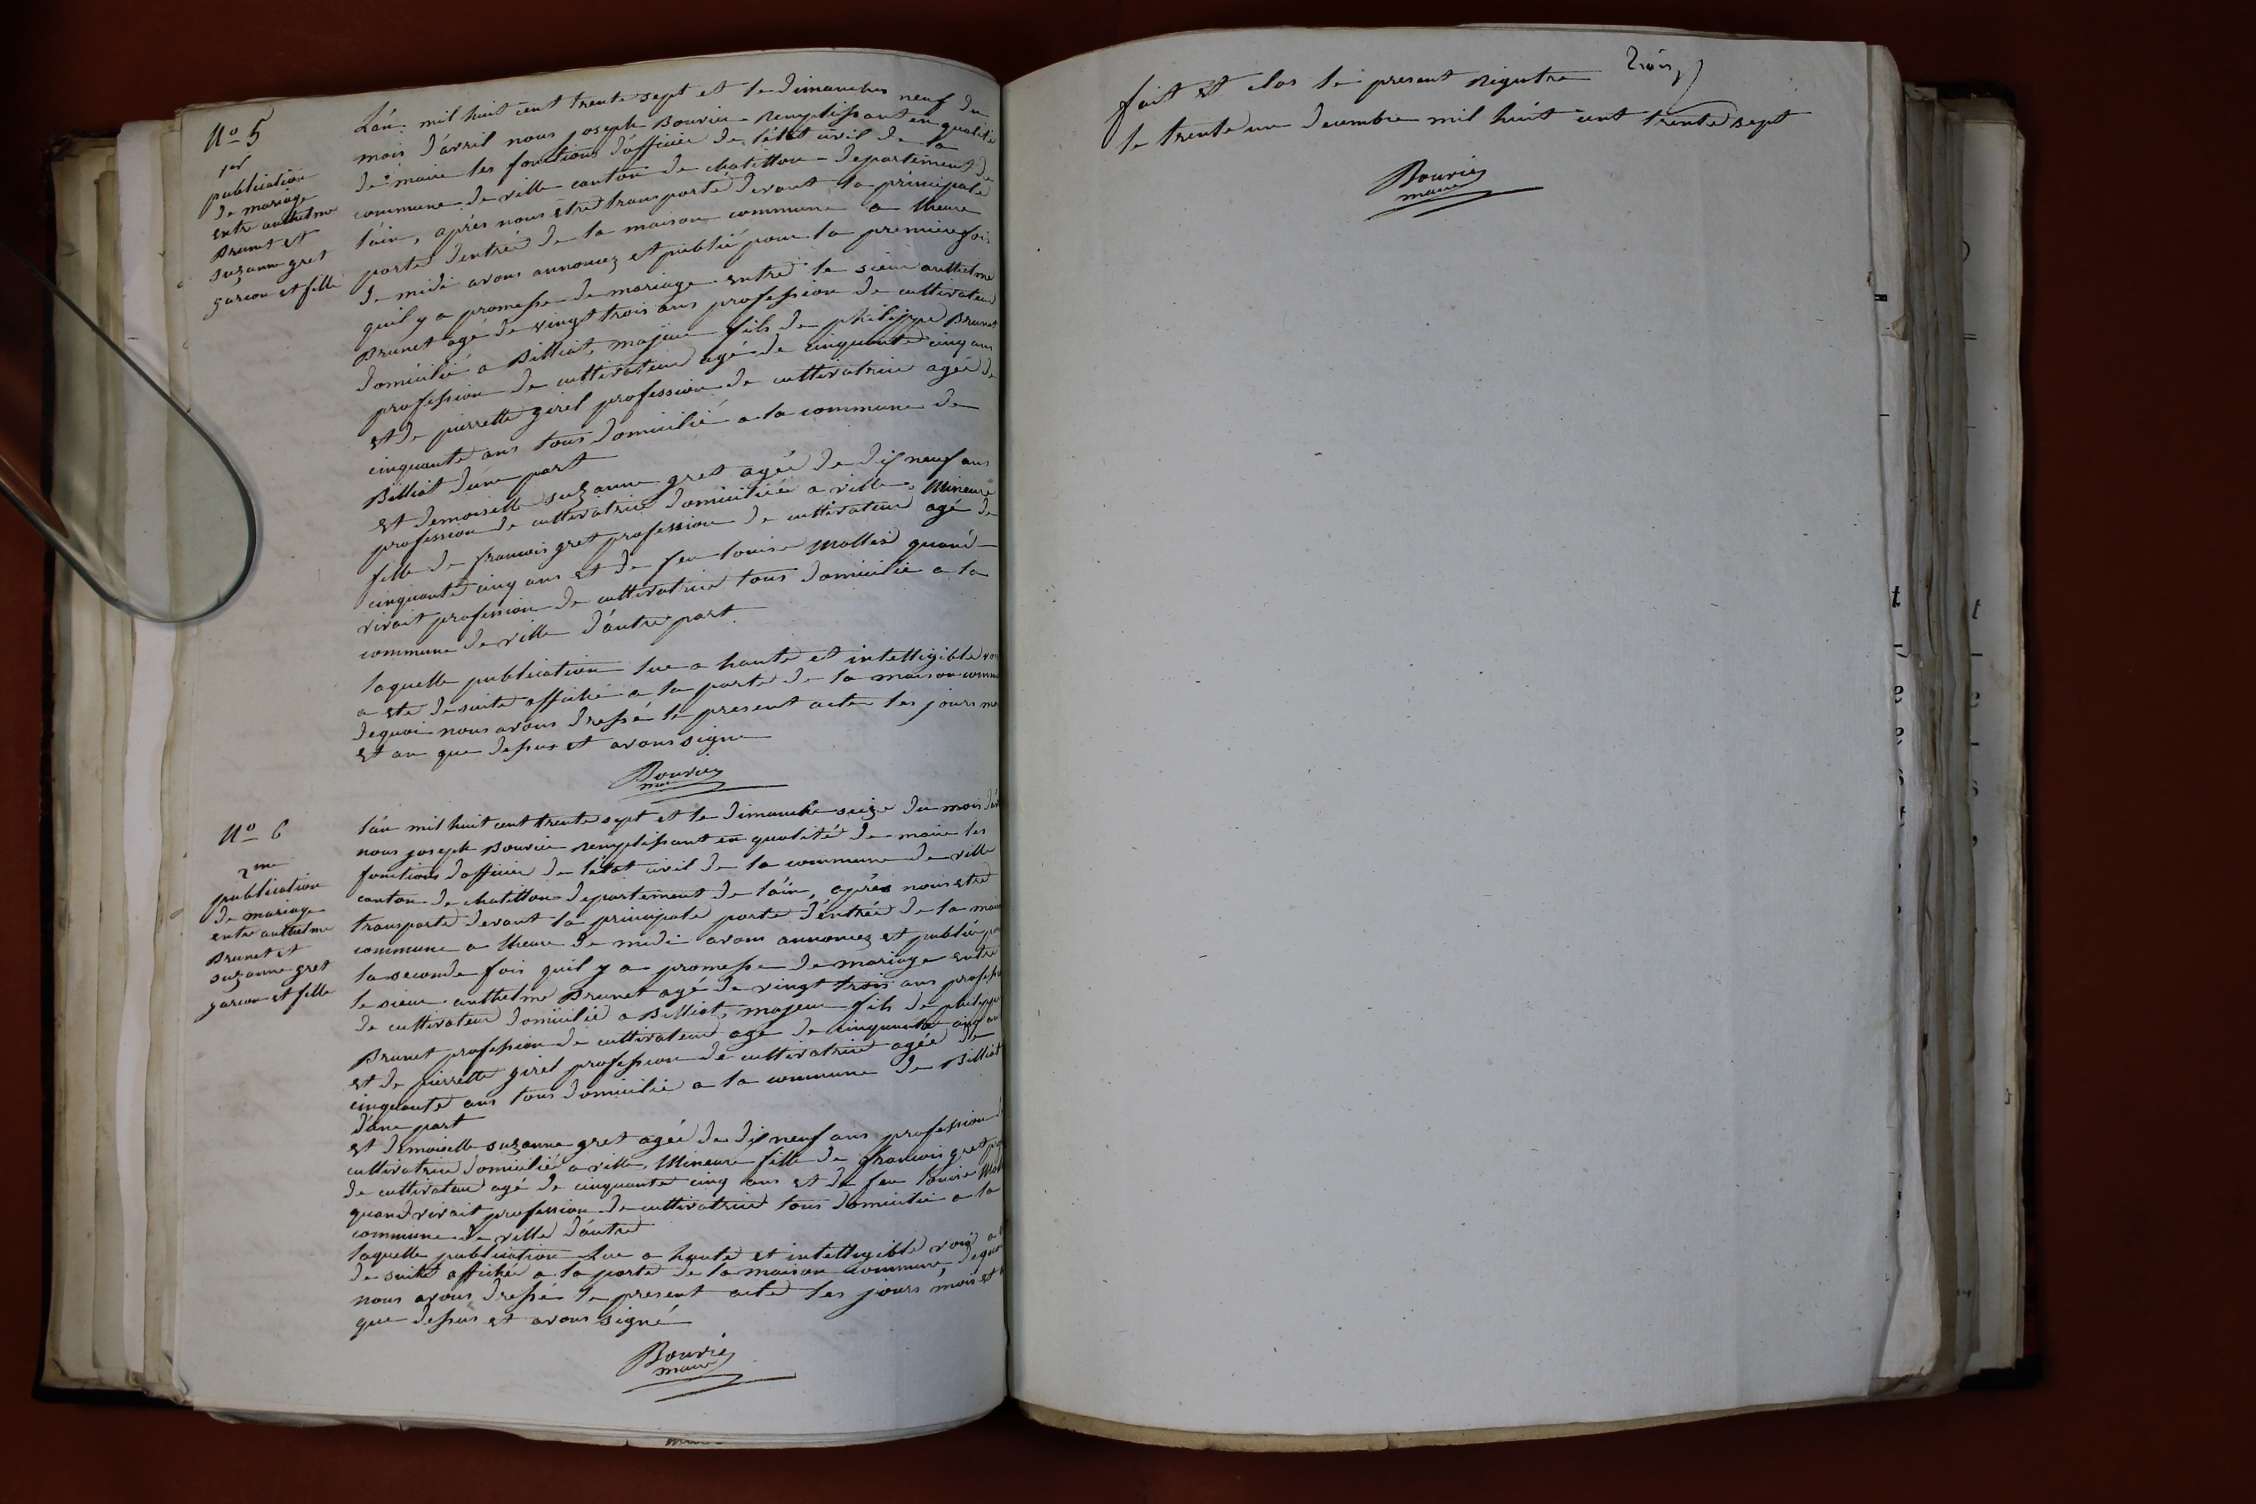 No 5
1er
publication
de mariage
entre anthelme
Brunet et
suzanne gret
garcon et fille
L'án mil huit cent trente sept et le dimanches neuf du
mois d'ávril nous joseph Bouvier remplissant en qualitée
de maire les fonctions d'officier de l'état civil de la
commune de ville canton de chatillon departement de
l'áin, áprés nous être transporté devant la principale
porte d'entrée de la maison commune a lheure
de midi avons annoncez et publié pour la premiere fois
quil y a promesse de mariage entre le sieur anthelme
Brunet agé de vingt trois ans profession de cultivateur
domicilié a Billiat, majeur fils de philippe Brunet
profession de cultivateur agé de cinquante cinq ans
et de pierrette girel profession de cultivatrice agée de
cinquante ans tous domicilié a la commune de
Billiat d'une part
et demoiselle suzanne gret agée de dix neuf ans
profession de cultivatrice domiciliée a ville, Mineure
fille de francois gret profession de cultivateur agé de
cinquante cinq ans et de feu louise Mollie quand
vivait profession de cultivatrice tous domicilié a la
commune de ville d'áutre part
laquelle publication lue a haute et intelligible voi
a ete de suite affiché a la porte de la maison comm
dequoi nous avons dressé le present acte les jours mo
et an que dessus et avons signe
Bouvier
maire
No 6
2me
publication
de mariage
entre anthelme
Brunet et
suzanne gret
garcon et fille
l'án mil huit cent trente sept et le dimanche seize du mois d'áv
nous joseph Bouvier remplissant en qualité de maire les
fonctions d'officier de l'état civil de la commune de ville
canton de chatillon departement de l'áin, áprés nous etre
transporté devant la principale porte d'éntrée de la mais
commune a lheure de midi avons annoncez et publié po
la seconde fois quil y a promesse de mariage entre
le sieur anthelme Brunet agé de vingt trois ans profess
de cultivateur domicilié a Billiat, majeur fils de philippe
Brunet profession de cultivateur agé de cinquante cinq an
et de pierrette girel profession de cultivatrice agée de
cinquante ans tous domicilié a la commune de Billiat
d'úne part
et demoiselle suzanne gret agée de dix neuf ans profession d
cultivatrice domiciliée a ville, Mineure fille de francois gret pro
de cultivateur agé de cinquante cinq ans et de feu louise Mol
quand vivait profession de cultivatrice tous domicilié a la
commune de ville d'áutre
laquelle publication lue a haute et intelligible voix a
de suite affichée a la porte de la maison commune, dequoi
nous avons dressé le present acte les jours mois et
que dessus et avons signé
Bouvier
maire
trois
fait et clos le present rigistre
le trente un decembre mil huit cent trente sept
Bouvier
maire